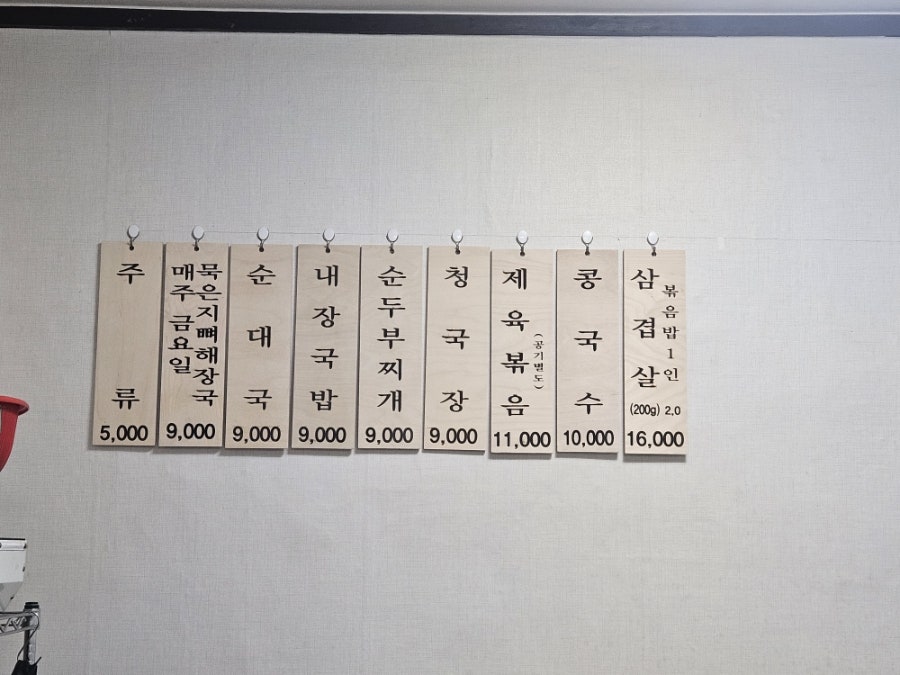 주류
5,000
묵은지뼈해장국
매주 금요일
9,000
순대국
9,000
내장국밥
9,000
순두부찌개
9,000
청국장
9,000
제육볶음
(공기별도)
11,000
콩국수
10,000
삼겹살
(200g)
볶음밥1인
2,0
16,000